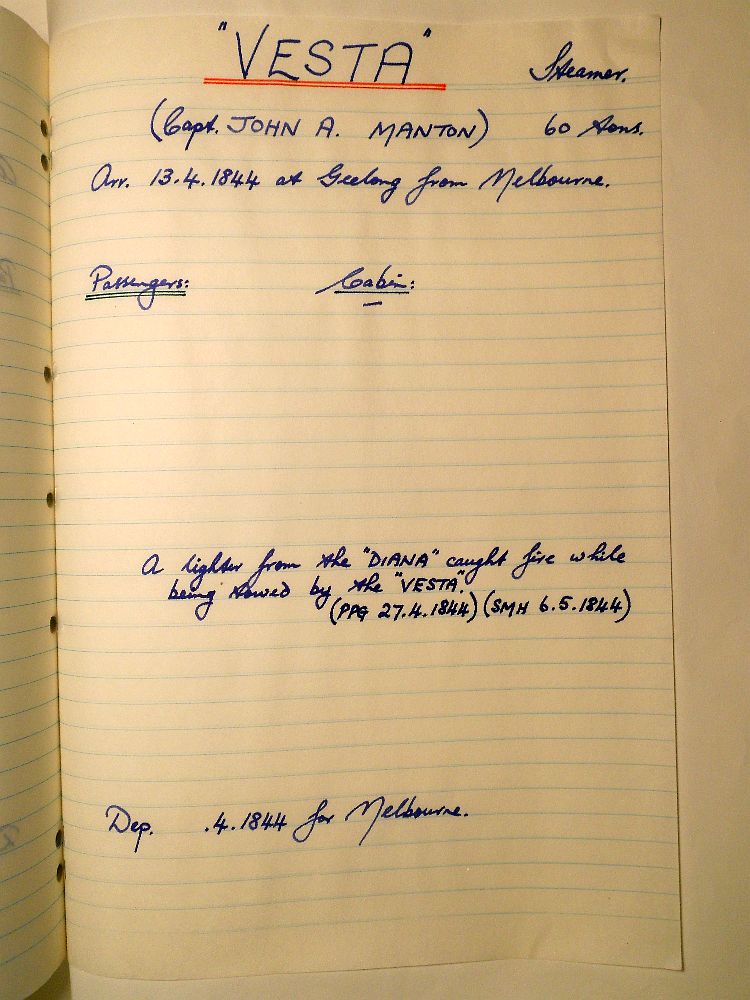 "VESTA" Steamer.
(Capt. JOHN A. MANTON) 60 tons.
Arr. 13.4.1844 at Geelong from Melbourne.
Passengers: Cabin:
—
A lighter from the "DIANA" caught fire while
being towed by the "VESTA".
(PPG 27.4.1844) (SMH 6.5.1844)
Dep. .4.1844 for Melbourne.